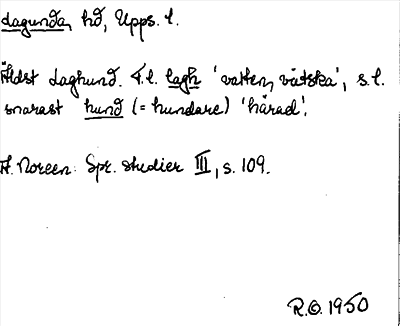 Lagunda, hd, Upps. l.
Äldst Laghund. F.l. lagh 'vatten, vätska', s.l.
snarast hund (= hundare) 'härad'.
A. Noreen: Spr. studier III, s. 109.
R.O. 1950